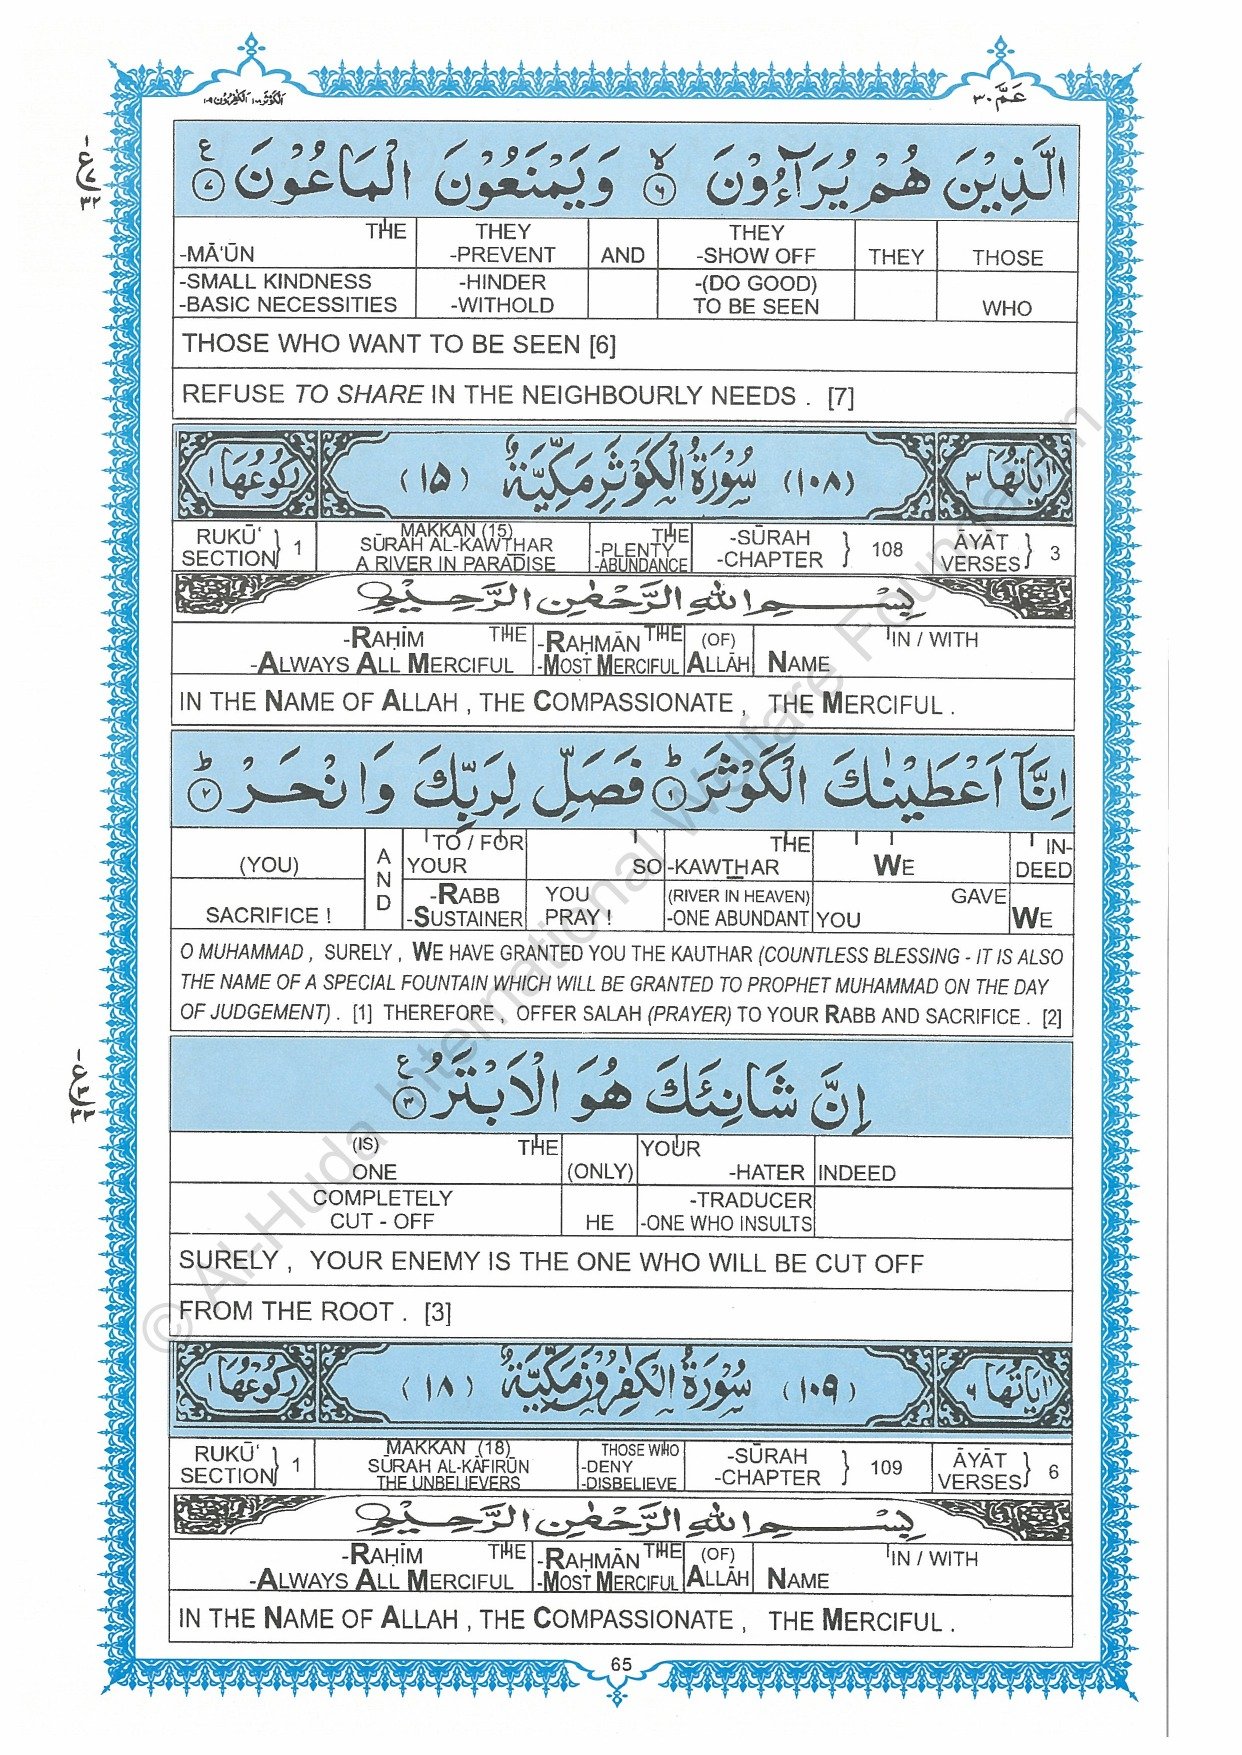 الكوثر ١٠٨ الكفرون ١٠٩
عَمَّ ٣٠
الَّذِيْنَ هُمْ يُرَآءُوْنَ ۙ﴿۶﴾ وَيَمْنَعُوْنَ الْمَاعُوْنَ ﴿۷﴾ ع
ع
۷
۳۲
THE THEY THEY
-MĀ'ŪN -PREVENT AND -SHOW OFF THEY THOSE
-SMALL KINDNESS -HINDER -(DO GOOD)
-BASIC NECESSITIES -WITHOLD TO BE SEEN WHO
THOSE WHO WANT TO BE SEEN [6]
REFUSE TO SHARE IN THE NEIGHBOURLY NEEDS . [7]
اٰيَاتُهَا ۳ (۱۰۸) سُوْرَةُ الْكَوْثَرِ مَكِّيَّةٌ (۱۵) رُكُوْعُهَا ۱
RUKŪ‘ SECTION } 1 MAKKAN (15) SŪRAH AL-KAWTHAR A RIVER IN PARADISE THE -PLENTY -ABUNDANCE -SŪRAH -CHAPTER } 108 ĀYĀT VERSES } 3
بِسْمِ اللهِ الرَّحْمٰنِ الرَّحِيْمِ
-RAḤĪM THE -RAḤMĀN THE (OF) IN / WITH
-ALWAYS ALL MERCIFUL -MOST MERCIFUL ALLĀH NAME
IN THE NAME OF ALLAH , THE COMPASSIONATE , THE MERCIFUL .
اِنَّآ اَعْطَيْنٰكَ الْكَوْثَرَ ؕ﴿۱﴾ فَصَلِّ لِرَبِّكَ وَانْحَرْ ؕ﴿۲﴾
TO / FOR THE IN-
(YOU) AND YOUR SO -KAWTHAR WE DEED
-RABB YOU (RIVER IN HEAVEN) GAVE
SACRIFICE ! -SUSTAINER PRAY ! -ONE ABUNDANT YOU WE
O MUHAMMAD , SURELY , WE HAVE GRANTED YOU THE KAUTHAR (COUNTLESS BLESSING - IT IS ALSO
THE NAME OF A SPECIAL FOUNTAIN WHICH WILL BE GRANTED TO PROPHET MUHAMMAD ON THE DAY
OF JUDGEMENT) . [1] THEREFORE , OFFER SALAH (PRAYER) TO YOUR RABB AND SACRIFICE . [2]
اِنَّ شَانِئَكَ هُوَ الْاَبْتَرُ ﴿۳﴾ ع
ع
۳
۳۳
(IS) THE YOUR
ONE (ONLY) -HATER INDEED
COMPLETELY -TRADUCER
CUT - OFF HE -ONE WHO INSULTS
SURELY , YOUR ENEMY IS THE ONE WHO WILL BE CUT OFF
FROM THE ROOT . [3]
اٰيَاتُهَا ۶ (۱۰۹) سُوْرَةُ الْكٰفِرُوْنَ مَكِّيَّةٌ (۱۸) رُكُوْعُهَا ۱
RUKŪ‘ SECTION } 1 MAKKAN (18) SŪRAH AL-KĀFIRŪN THE UNBELIEVERS THOSE WHO -DENY -DISBELIEVE -SŪRAH -CHAPTER } 109 ĀYĀT VERSES } 6
بِسْمِ اللهِ الرَّحْمٰنِ الرَّحِيْمِ
-RAḤĪM THE -RAḤMĀN THE (OF) IN / WITH
-ALWAYS ALL MERCIFUL -MOST MERCIFUL ALLĀH NAME
IN THE NAME OF ALLAH , THE COMPASSIONATE , THE MERCIFUL .
65
© Al-Huda International Welfare Foundation